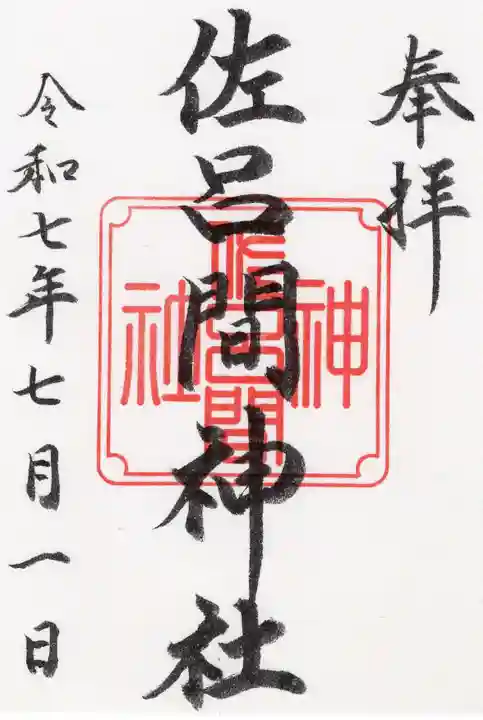 奉拝
佐呂間神社
令和七年七月一日
神
佐呂間
社